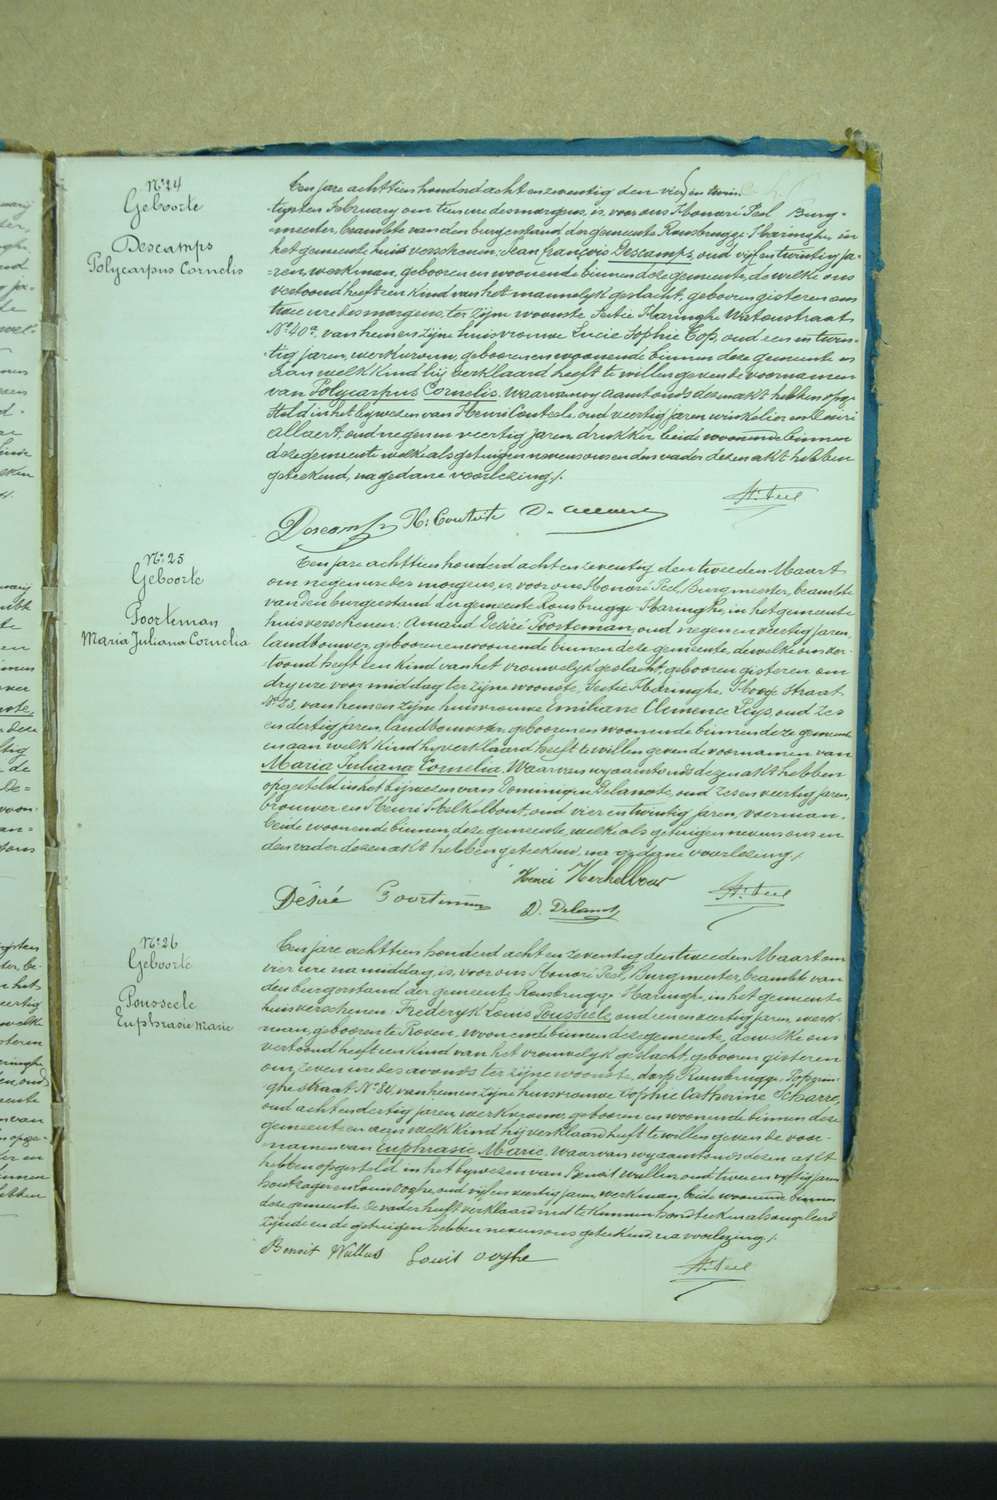 N° 24
Geboorte
Descamps
Polycarpus Cornelis
Ten jare achttien honderd acht en zeventig den vier en twin-
tigsten February om tien ure des morgens, is, voor ons Honoré Peel Burg-
meester, beambte van den burgerstand der gemeente Rousbrugge-Haringhe, in
het gemeente huis verschenen: Jean François Descamps, oud vijf en twintig ja-
ren, werkman, geboren en woonende binnen deze gemeente, de welke ons
vertoond heeft een kind van het mannelyk geslacht, geboren gisteren om
twee ure des morgens, ter zijne woonste, Sectie Haringhe Watoustraat
N° 40a, van hem en zijne huisvrouwe Lucie Sophie Top, oud een en twin-
-tig jaren, werkvrouw, geboren en woonende binnen deze gemeente en
aan welk kind hij verklaard heeft te willen geven de voornamen
van Polycarpus Cornelis. Waarvan wy aamtonds dezen akt hebben opge-
steld in het bywezen van Henri Couttele, oud veertig jaren, winkelier en
Allaert, oud negen en veertig jaren, drukker, beide woonende binnen
deze gemeente welke als getuigen nevens ons en den vader dezen akt hebben
geteekend, na gedane voorlezing ./.
Descamps H: Couttele D. H. Peel
N° 25
Geboorte
Poorteman
Maria Juliana Cornelia
Ten jare achttien honderd acht en zeventig den tweeden Maart
om negen ure des morgens, is, voor ons Honoré Peel, Burgmeester, beambte
van den burgerstand der gemeente Rousbrugge-Haringhe, in het gemeente
huis verschenen: Amand Desiré Poorteman, oud negen en veertig jaren,
landbouwer, geboren en woonende binnen deze gemeente, dewelke ons ver-
toond heeft een kind van het vrouwelyk geslacht, geboren gisteren om
dry ure voor middag ter zijne woonste, Sectie Haringhe Hooge Straat
N° 23, van hem en zijne huisvrouwe Emiliane Clemence Leys, oud zes
en dertig jaren, landbouwster, geboren en woonende binnen deze gemeente
en aan welk kind hy verklaard heeft te willen geven de voornamen van
Maria Juliana Cornelia. Waarvan wy aamtonds dezen akt hebben
opgesteld in het bijwezen van Dominique Delanote, oud zes en veertig jaren,
brouwer en Henri Herkelbout, oud vier en twintig jaren, voerman,
beide woonende binnen deze gemeente, welke als getuigen nevens ons en
den vader dezen akt hebben geteekend, na gedane voorlezing ./.
Henri Herkelbout
Désiré Poorteman D. Delanote H. Peel
N° 26
Geboorte
Pousseele
Euphrasie Marie
Ten jare achttien honderd acht en zeventig den tweeden Maart om
vier ure na middag, is, voor ons Honoré Peel, Burgmeester, beambte van
den burgerstand der gemeente Rousbrugge-Haringhe, in het gemeente
huis verschenen: Frederyk Louis Pousseele, oud een en veertig jaren, werk-
man, geboren te Proven, woonende binnen deze gemeente, dewelke ons
vertoond heeft een kind van het vrouwelyk geslacht, geboren gisteren
om zeven ure des avonds ter zijne woonste, dorp Rousbrugge, Popering-
ghe straat N° 82, van hem en zijne huisvrouwe Sophie Catherine Scharre,
oud acht en dertig jaren, werkvrouw, geboren en woonende binnen deze
gemeente en aan welk kind hij verklaard heeft te willen geven de voor-
namen van Euphrasie Marie. Waarvan wy aamtonds dezen akt
hebben opgesteld in het bijwezen van Benoit Wullus, oud twee en vijftig jaren
houtzager en Louis Ooghe, oud vijf en veertig jaren, werkman, beide woonende binnen
deze gemeente. De vader heeft verklaard niet te kunnen handteeken als ongeleerd
zijnde en de getuigen hebben nevens ons geteekend, na voorlezing ./.
Benoit Wullus Louis Ooghe H. Peel